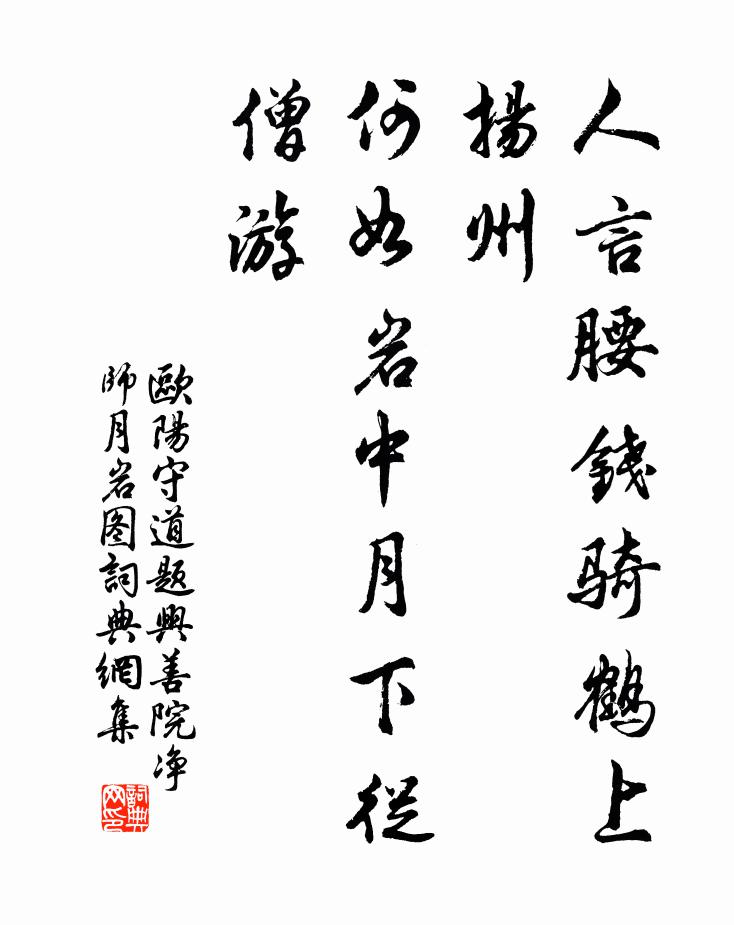 人言腰錢騎鶴上
揚州
何如岩中月下從
僧游
歐陽守道題興善院净
師月岩图詞典網集
詞典
网印